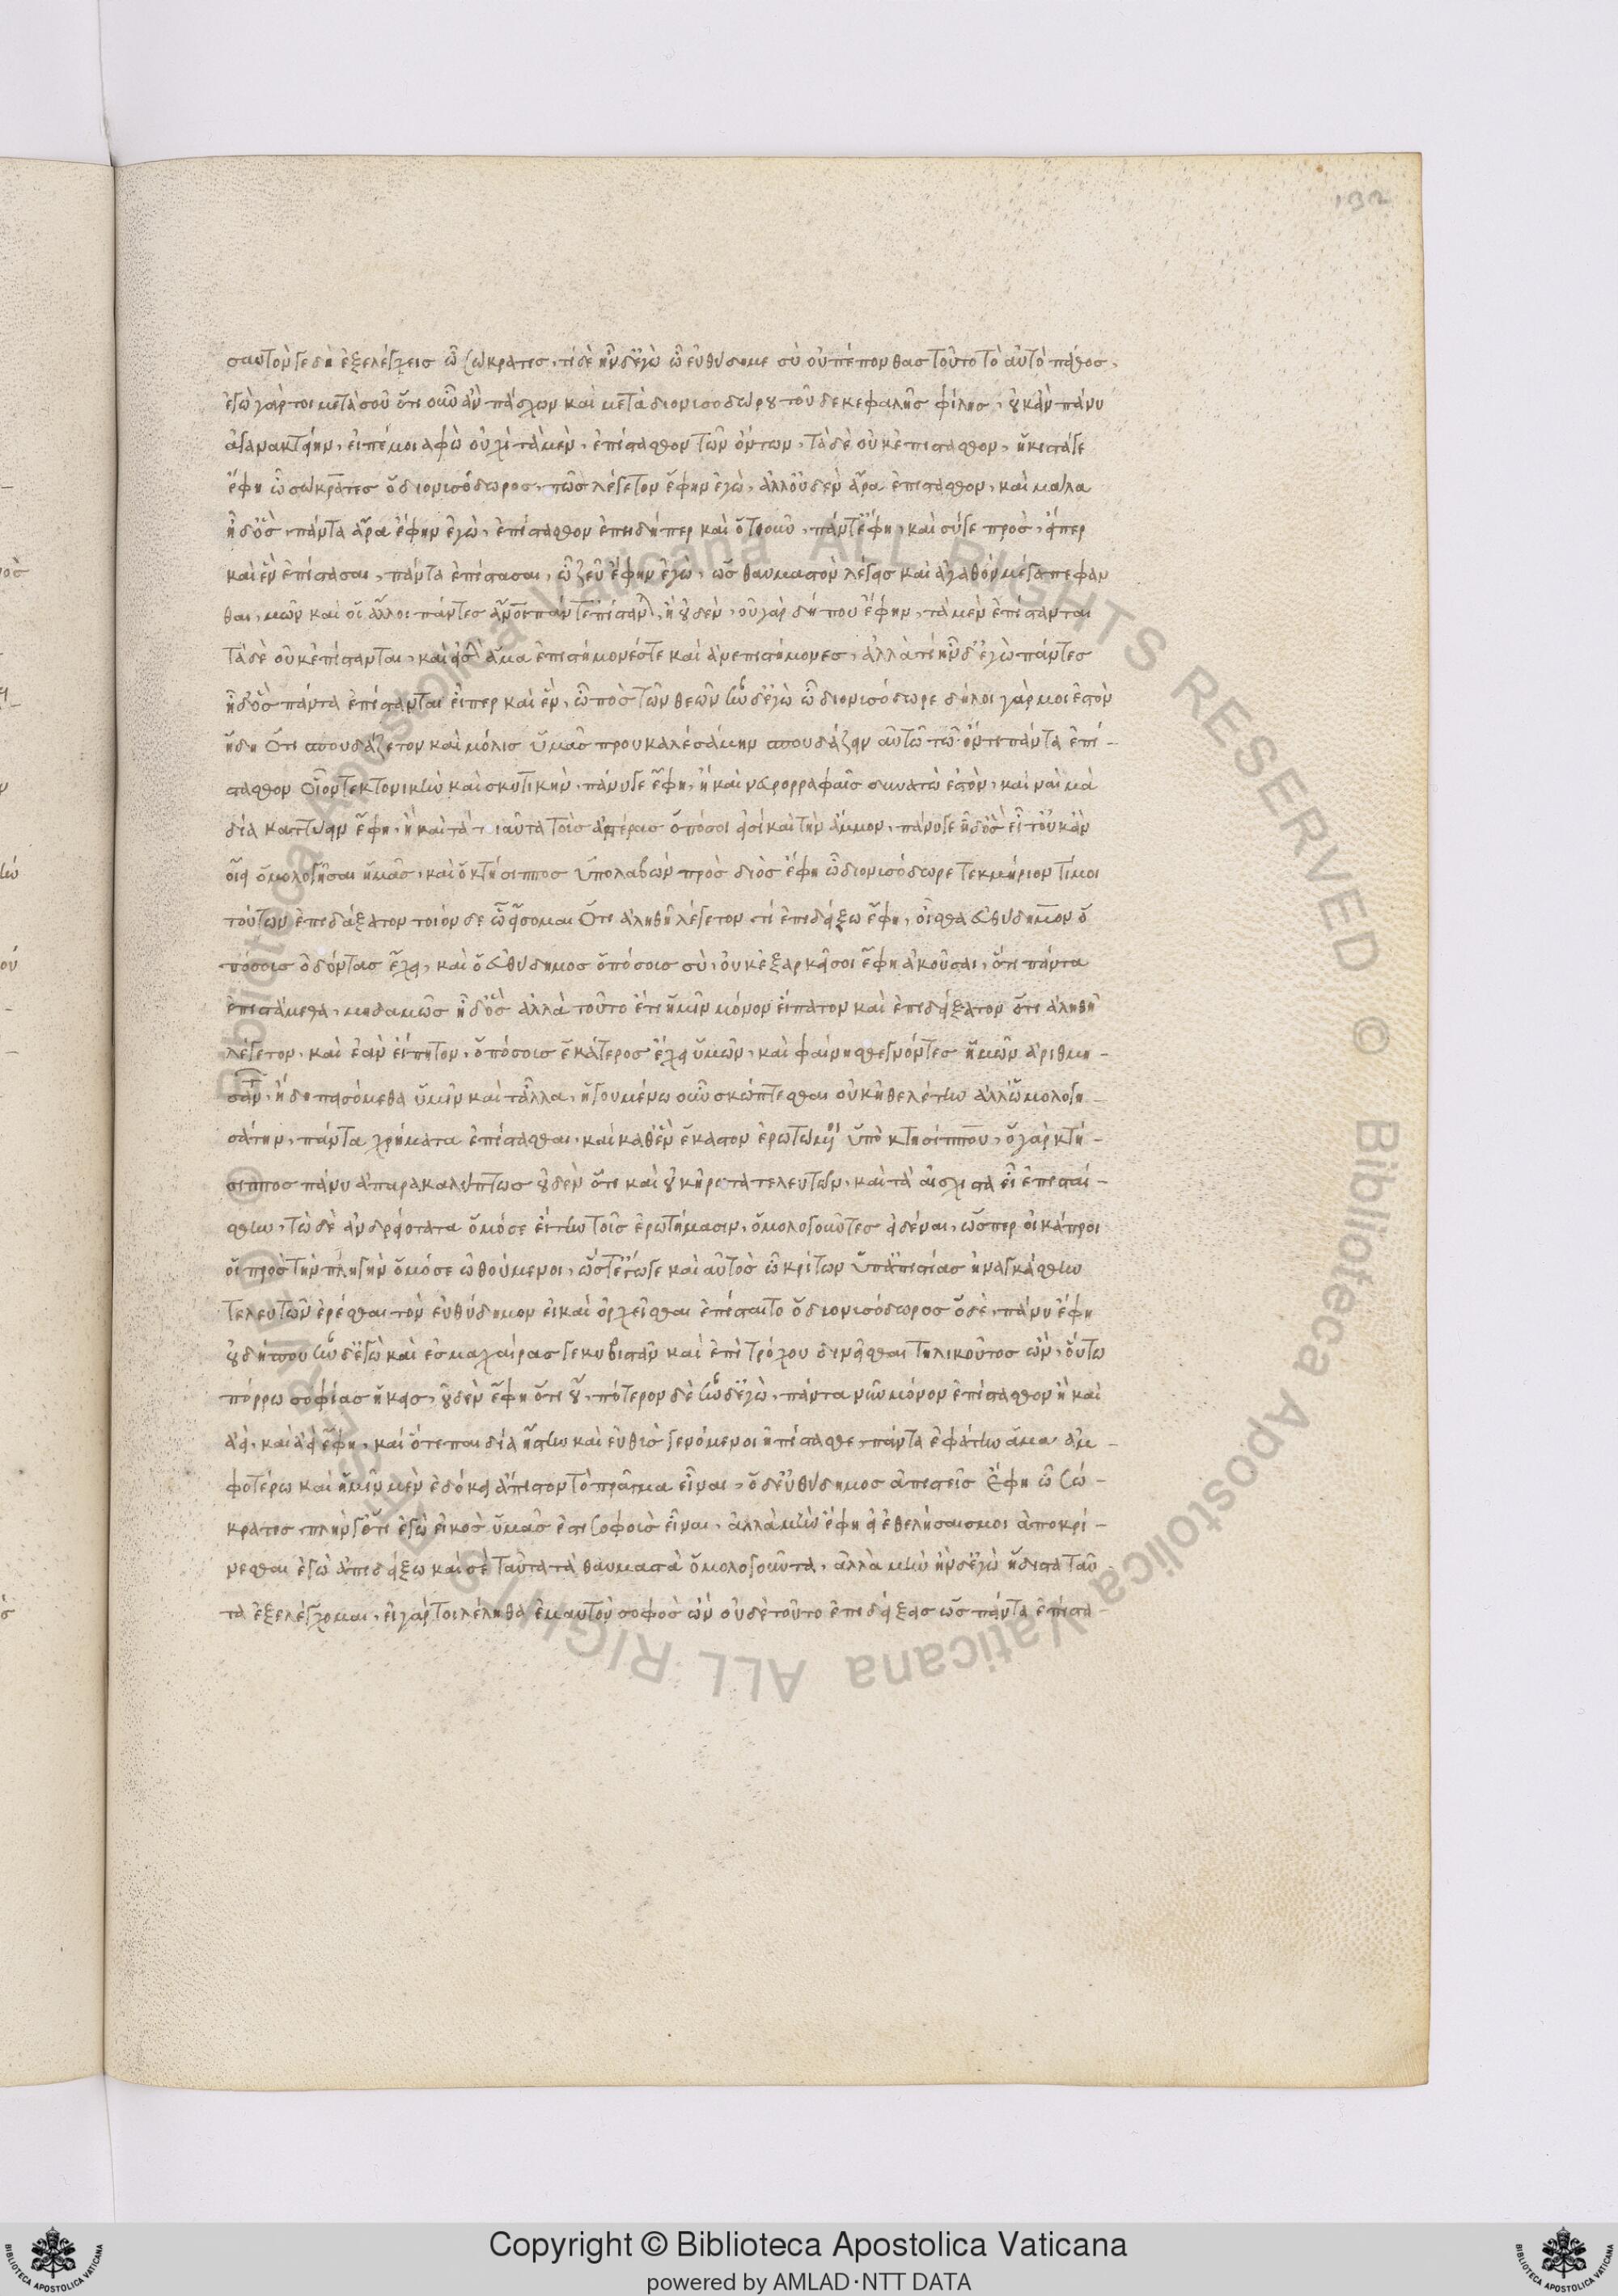 192
σαυτόν γε δὴ ἐξελέγχεις ὦ σώκρατες, τί δὲ ἦν δ' ἐγὼ ὦ εὐθύδημε σὺ οὐ πέπονθας τοῦτο τὸ αὐτὸ πάθος,
ἐγὼ γάρ τοι μετὰ σοῦ ὅτι οὖν ἂν πάσχων καὶ μετὰ διονυσοδώρου τοῦδε κεφαλῆς φίλης, οὐκ ἂν πάνυ
ἀγανακτοίην, εἰπέ μοι σφὼ οὐχὶ τὰ μὲν, ἐπίστασθον τῶν ὄντων, τὰ δὲ οὐκ ἐπίστασθον, ἥκιστά γε
ἔφη ὦ σώκρατες ὁ διονυσόδωρος, πῶς λέγετον ἔφην ἐγὼ, ἀλλ' οὐδὲν ἆρα ἐπίστασθον, καὶ μάλα
ἦ δ' ὃς, πάντα ἆρα ἔφην ἐγὼ, ἐπίστασθον ἐπειδήπερ καὶ ὁτιοῦν, πάντ' ἔφη, καὶ σύ γε πρὸς, εἴπερ
καὶ ἓν ἐπίστασαι, πάντα ἐπίστασαι, ὦ ζεῦ ἔφην ἐγὼ, ὡς θαυμαστὸν λέγεις καὶ ἀγαθὸν μέγα πεφάν
θαι, μῶν καὶ οἱ ἄλλοι πάντες ἄνοι πάντ' ἐπίστανται, ἢ οὐδὲν, οὐ γὰρ δήπου ἔφην, τὰ μὲν ἐπίστανται
τὰ δὲ οὐκ ἐπίστανται, καὶ εἰσὶν ἅμα ἐπιστήμονές τε καὶ ἀνεπιστήμονες, ἀλλὰ τί ἦν δ' ἐγὼ πάντες
ἦ δ' ὃς πάντα ἐπίστανται εἴπερ καὶ ἓν, ὦ πρὸς τῶν θεῶν ἦν δ' ἐγὼ ὦ διονυσόδωρε δῆλοι γάρ μοι ἐστὸν
ἤδη ὅτι σπουδάζετον καὶ μόλις ὑμᾶς προυκαλεσάμην σπουδάζειν αὐτῶ τῶ ὄντι πάντα ἐπί-
στασθον οἷον τεκτονικὴν καὶ σκυτικὴν, πάνυ γε ἔφη, ἢ καὶ νευρορραφεῖν δυνατὼ ἐστὸν, καὶ ναὶ μὰ
δία καττύειν ἔφη, ἢ καὶ τὰ τοιαῦτα τοὺς ἀστέρας ὁπόσοι εἰσὶ καὶ τὴν ἄμμον, πάνυ γε ἦ δ' ὃς εἶτ' οὐκ ἂν
οἴει ὁμολογῆσαι ἡμᾶς, καὶ ὁ κτήσιππος ὑπολαβὼν πρὸς διὸς ἔφη ὦ διονυσόδωρε τεκμήριον τί μοι
τούτων ἐπιδείξατον τοιόνδε ὧ εἴσομαι ὅτι ἀληθῆ λέγετον, τί ἐπιδείξω ἔφη, οἶσθα εὐθύδημον ὁ
πόσους ὀδόντας ἔχει, καὶ ὁ εὐθύδημος ὁπόσους σὺ, οὐκ ἐξαρκεῖ σοι ἔφη ἀκοῦσαι, ὅτι πάντα
ἐπιστάμεθα, μηδαμῶς ἦ δ' ὃς ἀλλὰ τοῦτο ἔτι ἡμῖν μόνον εἴπατον καὶ ἐπιδείξατον ὅτι ἀληθῆ
λέγετον, καὶ ἐὰν εἴπητον, ὁπόσους ἑκάτερος ἔχει ὑμῶν, καὶ φαίνησθε γνόντες ἡμῶν ἀριθμη-
σάντων, ἤδη πεισόμεθα ὑμῖν καὶ τἆλλα, ἡγουμένω οὖν σκώπτεσθαι οὐκ ἠθελέτην ἀλλ' ὡμολογη-
σάτην, πάντα χρήματα ἐπίστασθαι, καὶ καθ' ἓν ἕκαστον ἐρωτώμενοι ὑπὸ κτησίππου, ὁ γὰρ κτή-
σιππος πάνυ ἀπαρακαλύπτως οὐδὲν ὅτι καὶ οὐκ ἠρώτα τελευτῶν, καὶ τὰ αἴσχιστα εἰ ἐπισταί-
σθην, τὼ δὲ ἀνδρειότατα ὁμόσε ἐίτην τοῖς ἐρωτήμασιν, ὁμολογοῦντες εἰδέναι, ὥσπερ οἱ κάπροι
οἱ πρὸς τὴν πληγὴν ὁμόσε ὠθούμενοι, ὥστ' ἔγωγε καὶ αὐτὸς ὦ κρίτων ὑπ' ἀπιστίας ἠναγκάσθην
τελευτῶν ἐρέσθαι τὸν εὐθύδημον εἰ καὶ ὀρχεῖσθαι ἐπίσταιτο ὁ διονυσόδωρος ὁ δὲ, πάνυ ἔφη
οὐ δήπου ἦν δ' ἐγὼ καὶ ἐς μαχαίρας γε κυβιστᾶν καὶ ἐπὶ τρόχου δινεῖσθαι τηλικοῦτος ὢν, οὕτω
πόρρω σοφίας ἥκεις, οὐδὲν ἔφη ὅτι οὔ, πότερον δὲ ἦν δ' ἐγὼ, πάντα νῦν μόνον ἐπίστασθον ἢ καὶ
ἀεί, καὶ ἀεὶ ἔφη, καὶ ὅτε παιδία ἤστην καὶ εὐθὺς γενόμενοι ἠπίστασθε, πάντα ἐφάτην ἅμα ἀμ-
φοτέρω καὶ ἡμῖν μὲν ἐδόκει ἄπιστον τὸ πρᾶγμα εἶναι, ὁ δ' εὐθύδημος ἀπιστεῖς ἔφη ὦ σώ-
κρατες, πλήν γ' ὅτι ἔγὼ εἰκὸς ὑμᾶς ἐστι σοφοὺς εἶναι, ἀλλὰ μὴν ἔφη εἰ ἐθελήσαις μοι ἀποκρί-
νεσθαι ἐγὼ ἐπιδείξω καὶ σὲ ταῦτα τὰ θαυμαστὰ ὁμολογοῦντα, ἀλλὰ μὴν ἦν δ' ἐγὼ ἥδιστα ταῦ
τα ἐξελέγχομαι, εἰ γάρ τοι λέληθα ἐμαυτὸν σοφὸς ὢν σὺ δὲ τοῦτο ἐπιδείξας ὡς πάντα ἐπίστα-
Copyright © Biblioteca Apostolica Vaticana
powered by AMLAD·NTT DATA